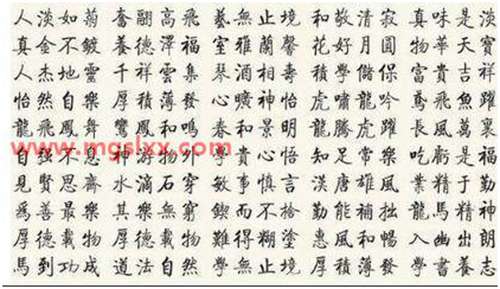 人淡如菊 奮翮高飛 藝無止境 和敬清寂 真味是淡
真金不鍍 養德澤福 室雅蘭馨 花好月圓 物華天寶
人杰地靈 千祥雲集 琴酒相壽 積學儲保 富貴吉祥
怡然自樂 厚積薄發 心曠神怡 虎嘯龍吟 鳶飛魚躍
龍飛鳳舞 鸞鳳和鳴 春和景明 龍騰虎躍 長風萬裏
www.mgslxx.com
自強不息 神游物外 和貴心悟 知足常樂 吃虧是福
見賢思齊 水滴石穿 敏事慎言 漢唐雄風 業精于勤
為善最樂 其樂無窮 鍥而不捨 勤能補拙 龍馬精神
厚德載物 厚德載物 難得糊塗 惠風和暢 入幽出朗
馬到功成 道法自然 學無止境 厚積薄發 學書養志